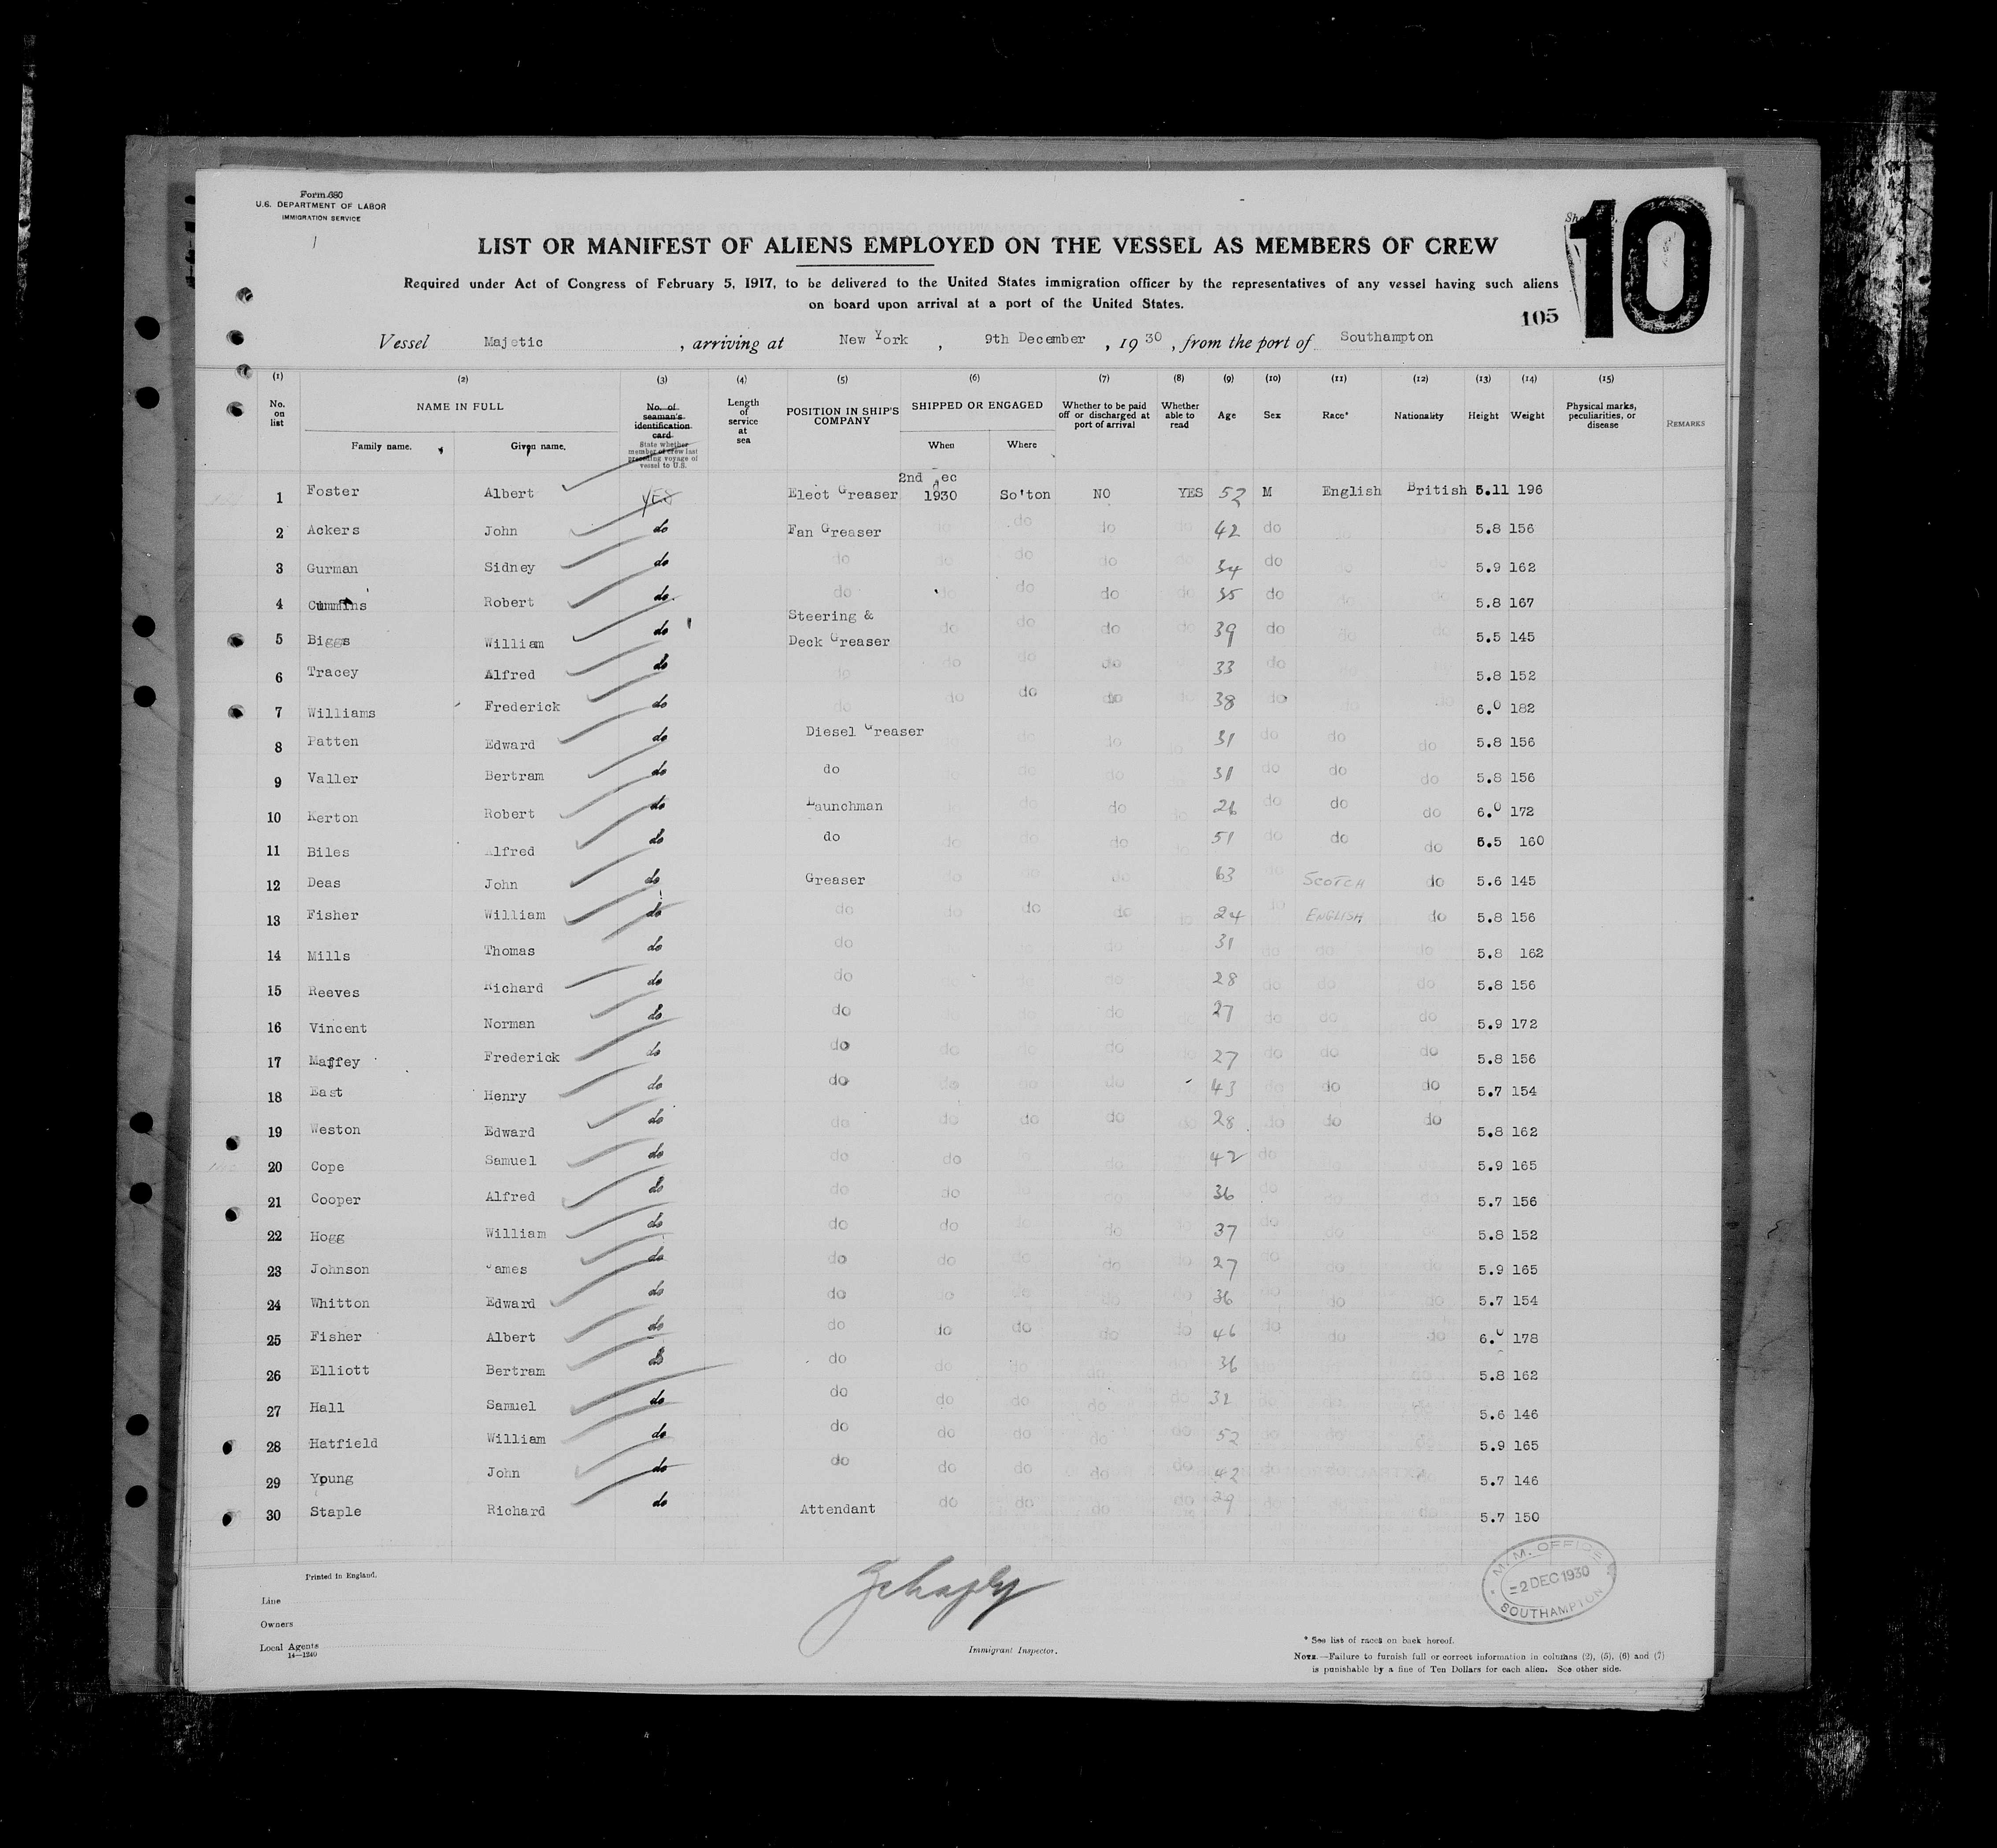 Form 680
U.S. DEPARTMENT OF LABOR
IMMIGRATION SERVICE
10
LIST OR MANIFEST OF ALIENS EMPLOYED ON THE VESSEL AS MEMBERS OF CREW
Required under Act of Congress of February 5, 1917, to be delivered to the United States immigration officer by the representatives of any vessel having such aliens
on board upon arrival at a port of the United States.
105
Vessel Majetic , arriving at New York , 9th December , 19 30 , from the port of Southampton
(1) (2) (3) (4) (5) (6) (7) (8) (9) (10) (11) (12) (13) (14) (15)
No. on list NAME IN FULL Family name. Given name. No. of seaman's identification card State whether member of crew last preceding voyage of vessel to U.S. Length of service at sea POSITION IN SHIP'S COMPANY SHIPPED OR ENGAGED When Where Whether to be paid off or discharged at port of arrival Whether able to read Age Sex Race* Nationality Height Weight Physical marks, peculiarities, or disease REMARKS
1 Foster Albert YES Elect Greaser 2nd Dec 1930 So'ton NO YES 52 M English British 5.11 196
2 Ackers John do Fan Greaser do do do do 42 do do do 5.8 156
3 Gurman Sidney do do do do do do 34 do do do 5.9 162
4 Cummins Robert do do do do do 35 do do do 5.8 167
5 Biggs William do Steering & Deck Greaser do do do do 39 do do do 5.5 145
6 Tracey Alfred do do do do do 33 do 5.8 152
7 Williams Frederick do do do do do do 38 do do do 6.0 182
8 Patten Edward do Diesel Greaser do do do do 31 do do do 5.8 156
9 Valler Bertram do do do do do 31 do do do 5.8 156
10 Kerton Robert do Launchman do do do do 26 do do do 6.0 172
11 Biles Alfred do do do do do do 51 do do do 5.5 160
12 Deas John do Greaser do do do 63 do SCOTCH do 5.6 145
13 Fisher William do do do do do do 24 do ENGLISH do 5.8 156
14 Mills Thomas do do do 31 do do do 5.8 162
15 Reeves Richard do do do do 28 do do do 5.8 156
16 Vincent Norman do do do do 27 do do do 5.9 172
17 Maffey Frederick do do do do do do 27 do do do 5.8 156
18 East Henry do do do do do 43 do do do 5.7 154
19 Weston Edward do do do do do do 28 do do do 5.8 162
20 Cope Samuel do do do do 42 do do do 5.9 165
21 Cooper Alfred do do do do 36 do do do 5.7 156
22 Hogg William do do do do do do 37 do do do 5.8 152
23 Johnson James do do do do do do 27 do do do 5.9 165
24 Whitton Edward do do do do do do 36 do do do 5.7 154
25 Fisher Albert do do do do do do 46 do do do 6.0 178
26 Elliott Bertram do do do do do do 36 do do do 5.8 162
27 Hall Samuel do do do do do do do 5.6 146
28 Hatfield William do do do do do do 52 do do do 5.9 165
29 Young John do do do do do do 42 do do do 5.7 146
30 Staple Richard do Attendant do do do do 29 do do do 5.7 150
Printed in England.
Line
Owners
Local Agents
14—1240
Immigrant Inspector.
M.M. OFFICE
2 DEC 1930
SOUTHAMPTON
* See list of races on back hereof.
NOTE.—Failure to furnish full or correct information in columns (2), (5), (6) and (7)
is punishable by a fine of Ten Dollars for each alien. See other side.